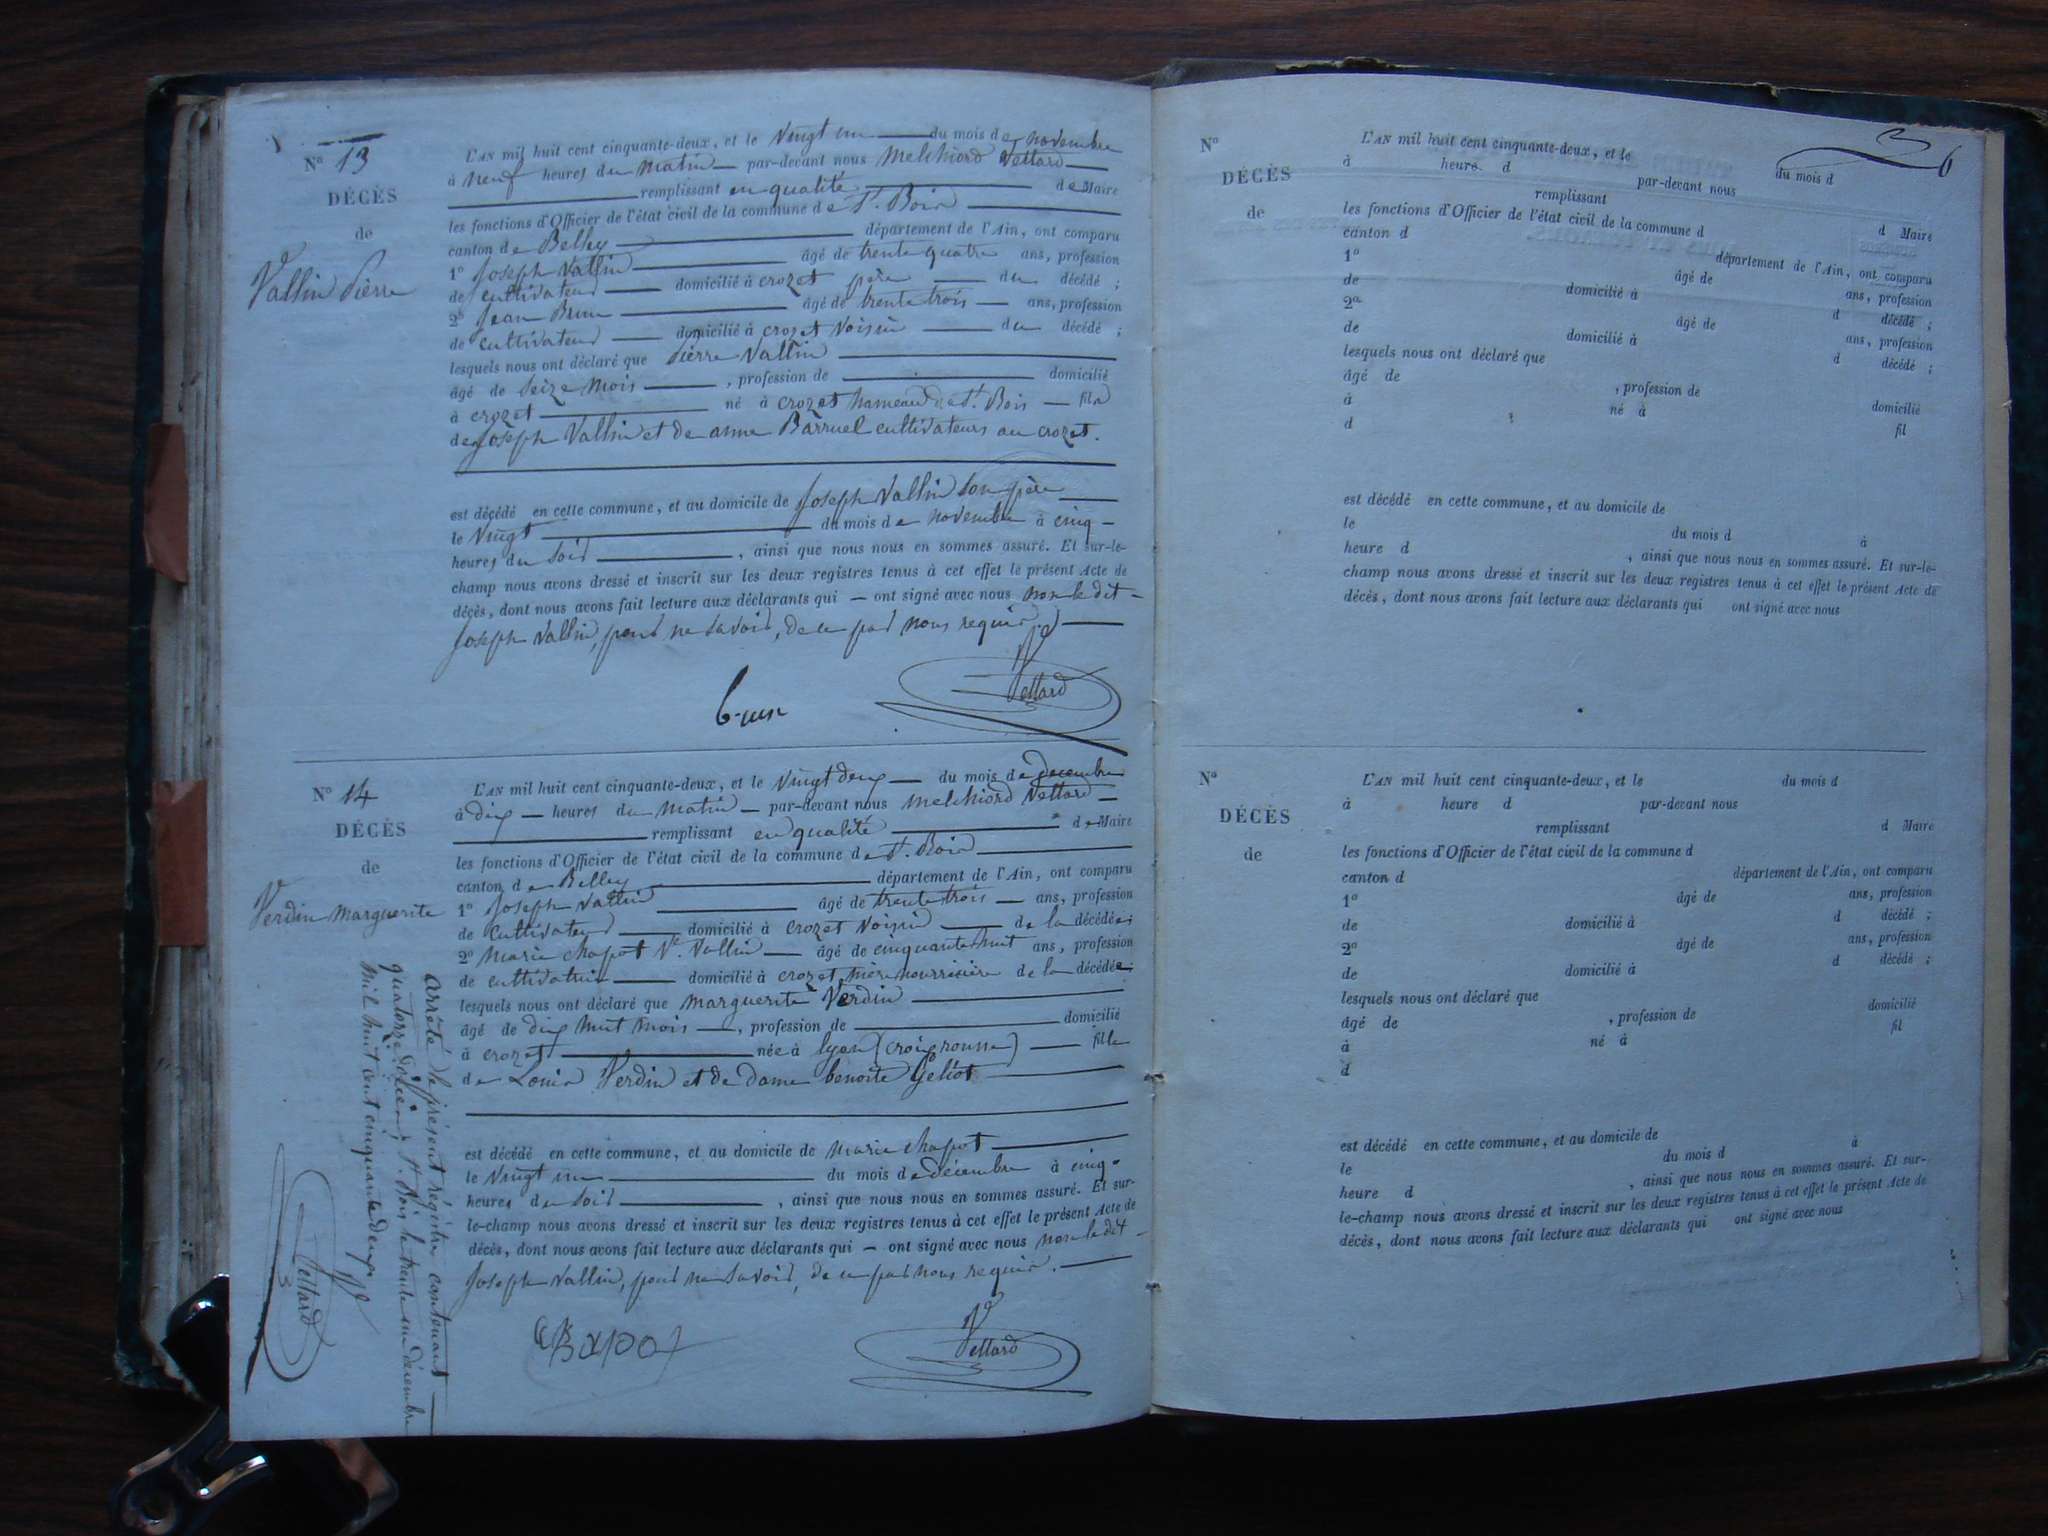 N° 13
DÉCÈS
de
Vallin Pierre
L'AN mil huit cent cinquante-deux, et le vingt un du mois de novembre
à neuf heures du matin par-devant nous Melchiord Vettard
remplissant en qualité de Maire
les fonctions d'Officier de l'état civil de la commune de St. Bois
canton de Belley département de l'Ain, ont comparu
1° Joseph Vallin âgé de trente quatre ans, profession
de cultivateur domicilié à crozet père du décédé ;
2° Jean Brun âgé de trente trois ans, profession
de cultivateur domicilié à crozet voisin du décédé ;
lesquels nous ont déclaré que Pierre Vallin
âgé de seize mois , profession de domicilié
à crozet né à crozet hameau de St. Bois fils
de Joseph Vallin et de anne Barruel cultivateurs au crozet.
est décédé en cette commune, et au domicile de Joseph Vallin son père
le vingt du mois de novembre à cinq
heures du soir , ainsi que nous nous en sommes assuré. Et sur-le-
champ nous avons dressé et inscrit sur les deux registres tenus à cet effet le présent Acte de
décès, dont nous avons fait lecture aux déclarants qui ont signé avec nous non le dit
Joseph Vallin, pour ne savoir, de ce par nous requis.
Brun
Vettard
N° 14
DÉCÈS
de
Verdin marguerite
L'AN mil huit cent cinquante-deux, et le vingt deux du mois de decembre
à dix heures du matin par-devant nous Melchiord Vettard
remplissant en qualité de Maire
les fonctions d'Officier de l'état civil de la commune de St. Bois
canton de Belley département de l'Ain, ont comparu
1° Joseph Vallin âgé de trente trois ans, profession
de cultivateur domicilié à crozet voisin de la décédée ;
2° marie chapot Ve. Vallin âgé de cinquante huit ans, profession
de cultivatrice domicilié à crozet mère nourricière de la décédée ;
lesquels nous ont déclaré que marguerite Verdin
âgé de dix huit mois , profession de domicilié
à crozet née à lyon (croix rousse) fille
de Louis Verdin et de dame benoite Géliot
est décédé en cette commune, et au domicile de marie chapot
le vingt un du mois de décembre à cinq
heures du soir , ainsi que nous nous en sommes assuré. Et sur-
le-champ nous avons dressé et inscrit sur les deux registres tenus à cet effet le présent Acte de
décès, dont nous avons fait lecture aux déclarants qui ont signé avec nous non le dit
Joseph Vallin, pour ne savoir, de ce par nous requis.
Chapot
Vettard
arrêté le présent régistre contenant
quatorze décès à St. Bois le trente un décembre
mil huit cent cinquante deux
Vettard
6
N°
DÉCÈS
de
L'AN mil huit cent cinquante-deux, et le du mois d
à heure d par-devant nous
remplissant d Maire
les fonctions d'Officier de l'état civil de la commune d
canton d département de l'Ain, ont comparu
1° âgé de ans, profession
de domicilié à d décédé ;
2° âgé de ans, profession
de domicilié à d décédé ;
lesquels nous ont déclaré que
âgé de , profession de domicilié
à né à fil
d
est décédé en cette commune, et au domicile de
le du mois d à
heure d , ainsi que nous nous en sommes assuré. Et sur-le-
champ nous avons dressé et inscrit sur les deux registres tenus à cet effet le présent Acte de
décès, dont nous avons fait lecture aux déclarants qui ont signé avec nous
N°
DÉCÈS
de
L'AN mil huit cent cinquante-deux, et le du mois d
à heure d par-devant nous
remplissant d Maire
les fonctions d'Officier de l'état civil de la commune d
canton d département de l'Ain, ont comparu
1° âgé de ans, profession
de domicilié à d décédé ;
2° âgé de ans, profession
de domicilié à d décédé ;
lesquels nous ont déclaré que
âgé de , profession de domicilié
à né à fil
d
est décédé en cette commune, et au domicile de
le du mois d à
heure d , ainsi que nous nous en sommes assuré. Et sur-
le-champ nous avons dressé et inscrit sur les deux registres tenus à cet effet le présent Acte de
décès, dont nous avons fait lecture aux déclarants qui ont signé avec nous